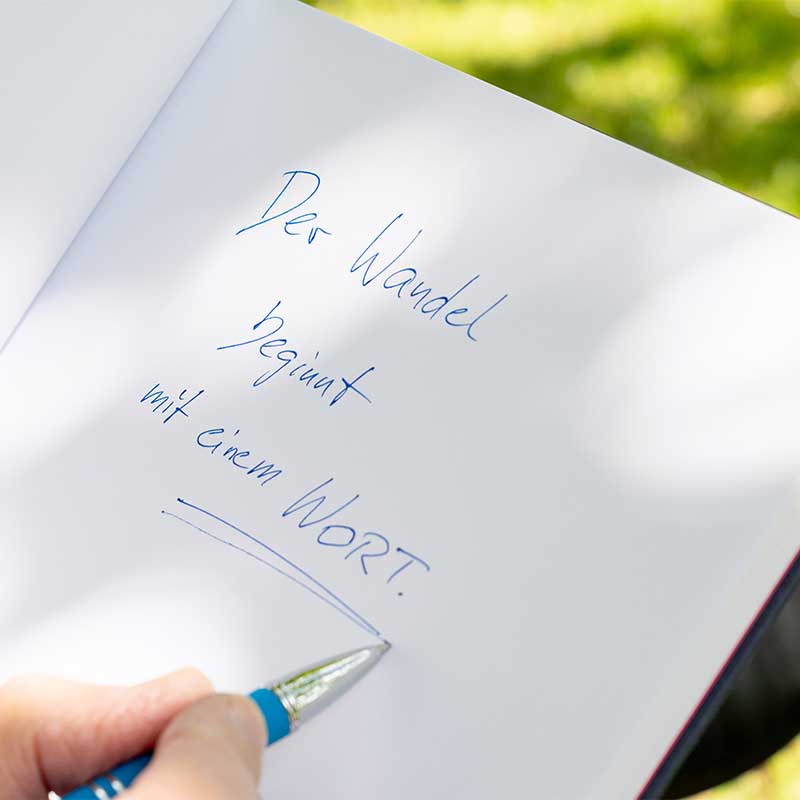 Der Wandel
beginnt
mit einem WORT.